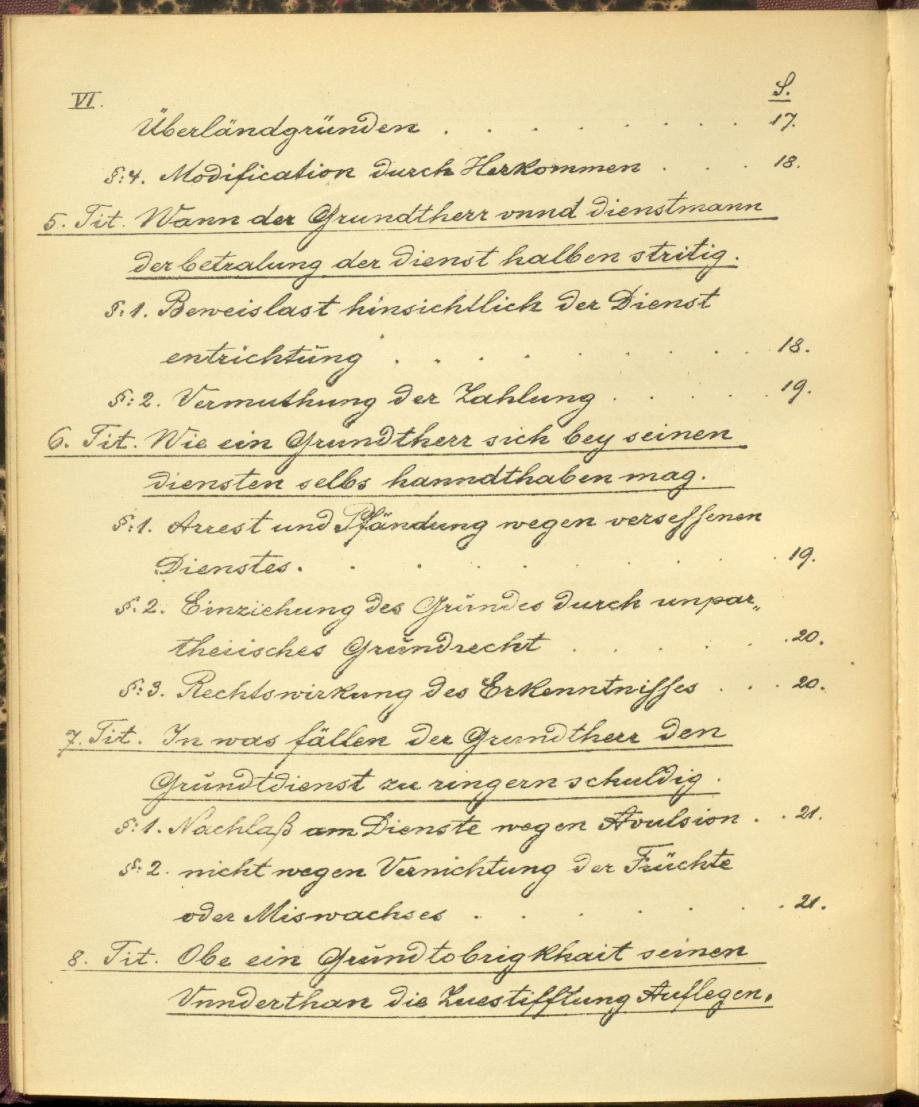 VI.
S.
Überländgründen . . . . . . . . 17.
§:4. Modification durch Herkommen . . . 18.
5. Tit. Wann der Grundtherr vnnd dienstmann
der betzalung der dienst halben stritig.
§:1. Beweislast hinsichtlich der Dienst
entrichtung . . . . . . . . . 18.
§:2. Vermuthung der Zahlung . . . . . 19.
6. Tit. Wie ein Grundtherr sich bey seinen
diensten selbs hanndthaben mag.
§:1. Arrest und Pfändung wegen versessenen
Dienstes. . . . . . . . . 19.
§:2. Einziehung des Grundes durch unpar„
theiisches Grundrecht . . . . . . 20.
§:3. Rechtswirkung des Erkenntnisses . . . 20.
7. Tit. In was fällen der Grundtherr den
Grundtdienst zu ringern schuldig.
§:1. Nachlaß am Dienste wegen Avulsion . . 21.
§:2. nicht wegen Vernichtung der Früchte
oder Miswachses . . . . . . . 21.
8. Tit. Obe ein Grundtobrigkhait seinen
Vnnderthan die Zuestifftung Auflegen,